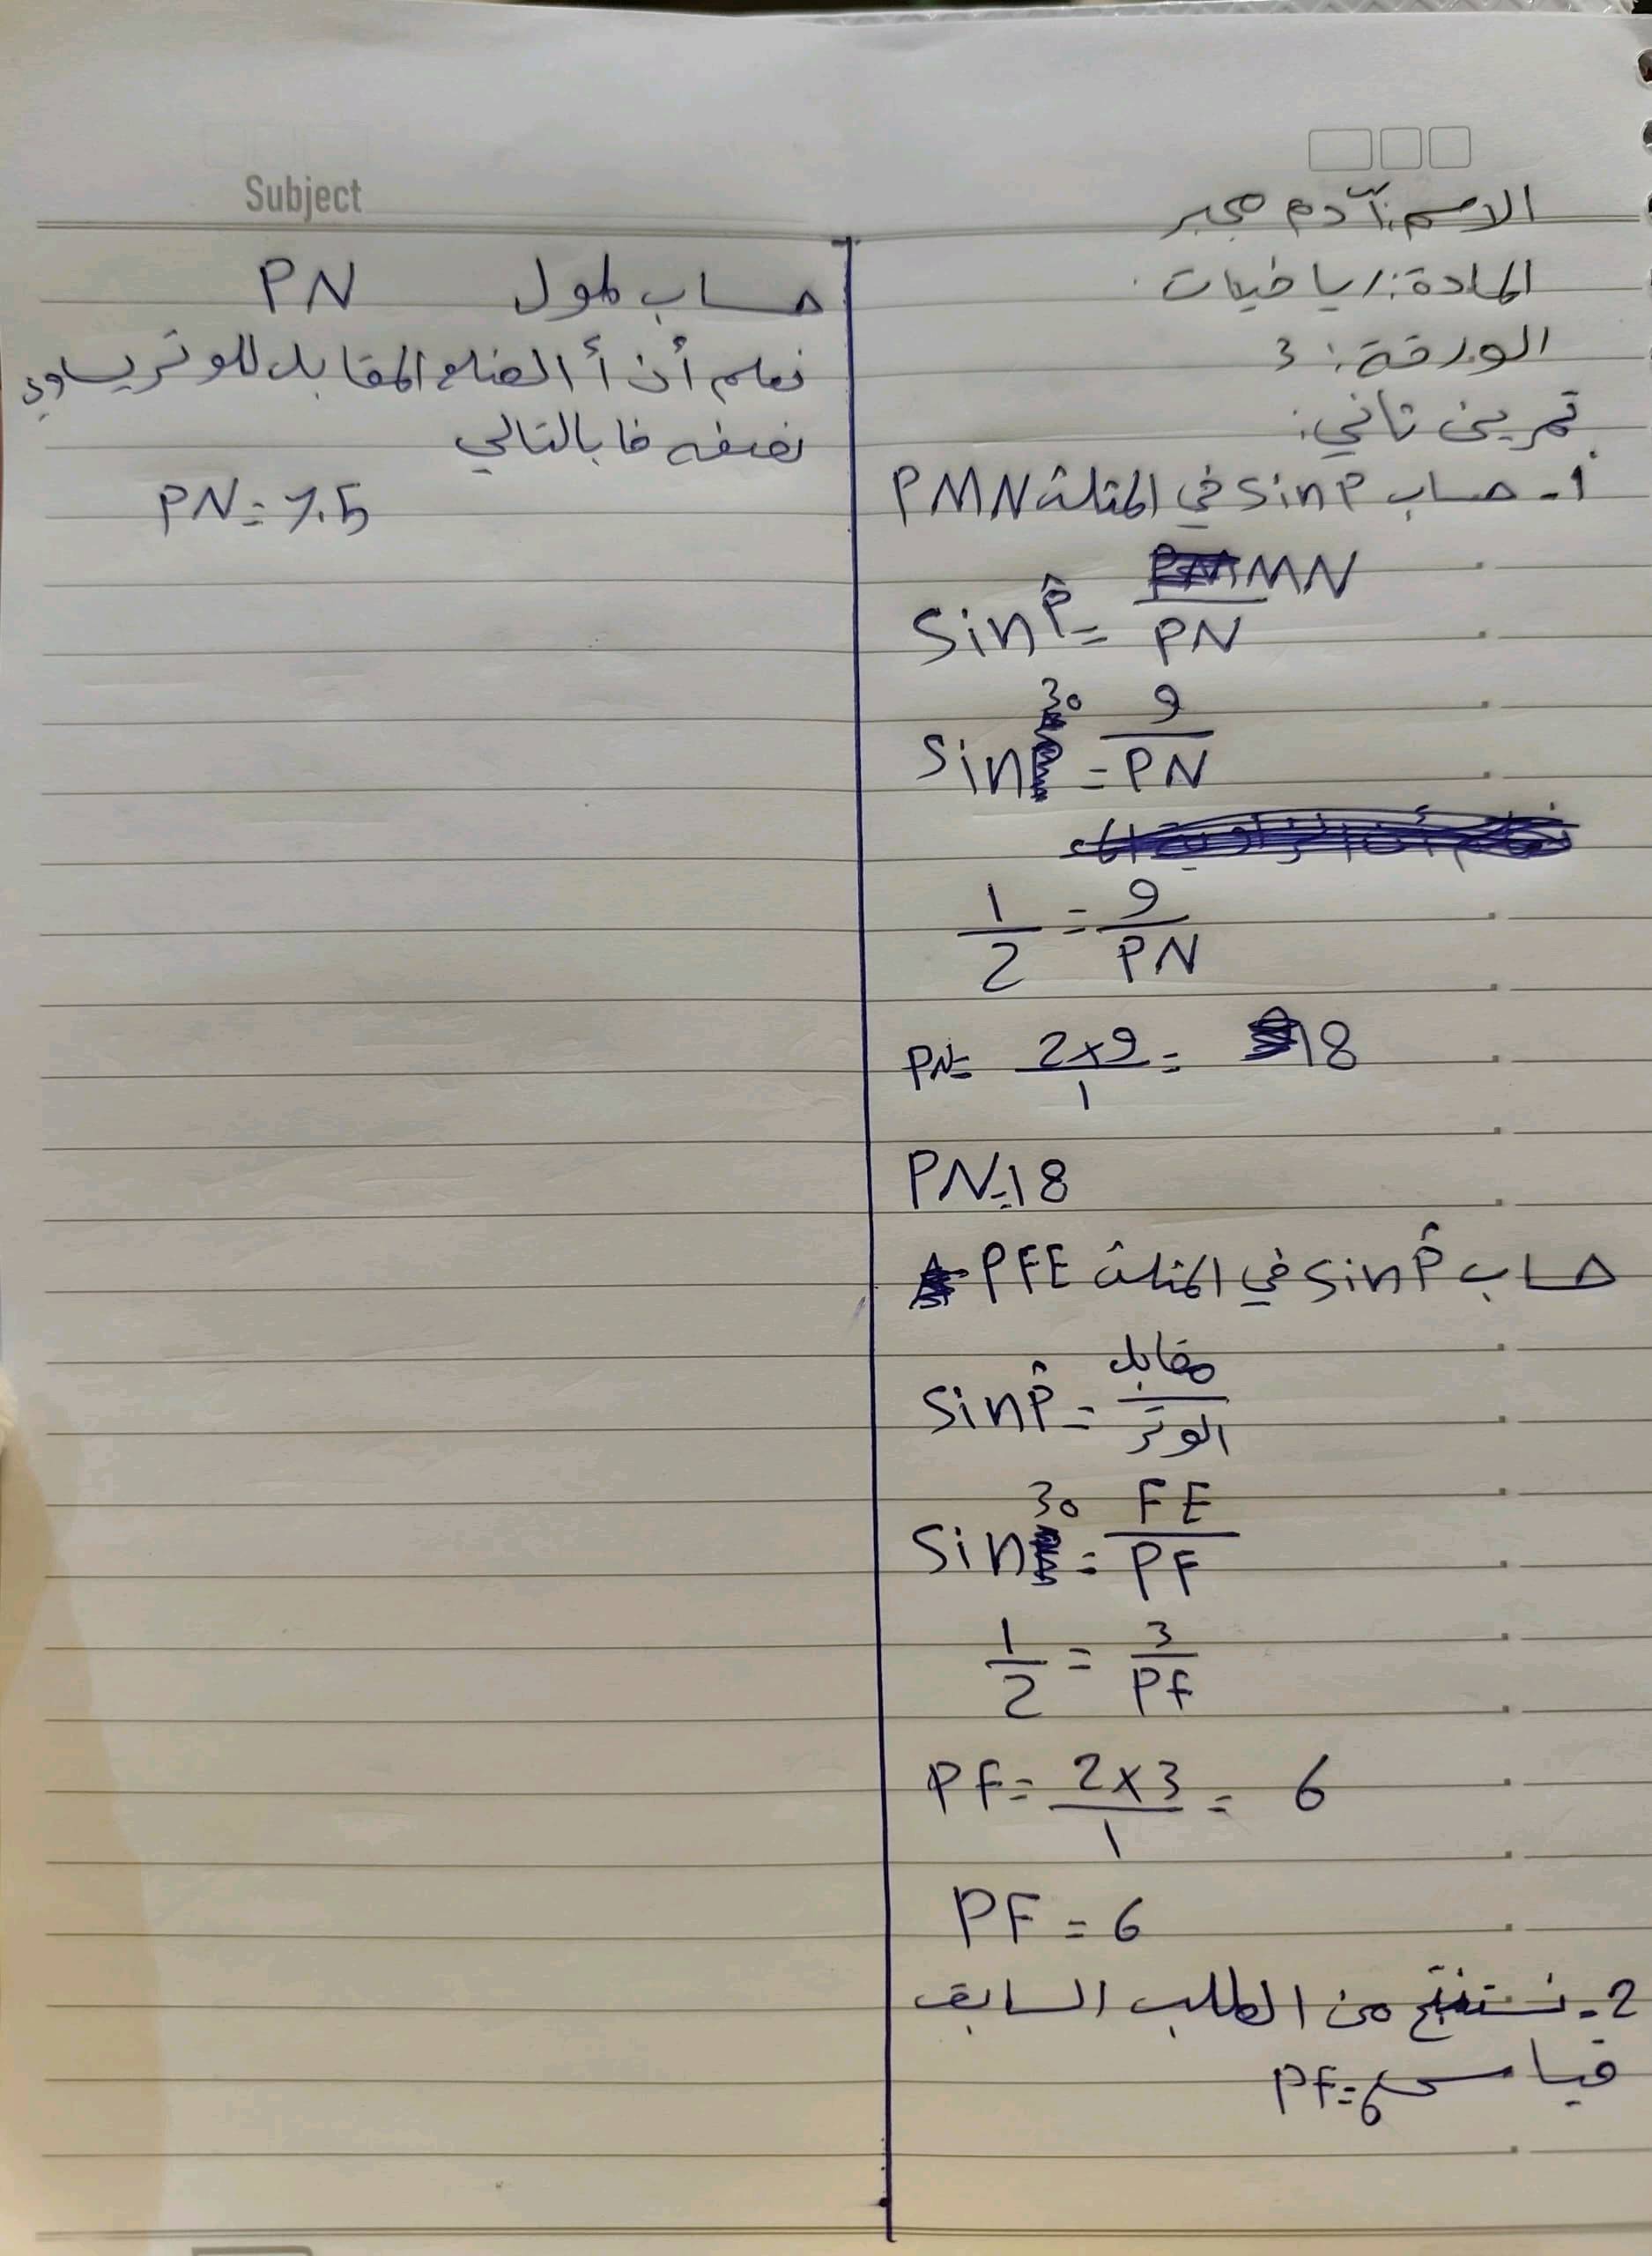 Subject
الاسم: آدم مجبر
المادة: رياضيات
الورقة: 3
تمرين ثاني:
1- حساب sin P في المثلث PMN
Sin P̂ = MN / PN
Sin 30 = 9 / PN
1/2 = 9 / PN
PN = 2×9 / 1 = 18
PN = 18
حساب sin P̂ في المثلث PFE
Sin P̂ = مقابل / الوتر
Sin 30 = FE / PF
1/2 = 3 / PF
PF = 2×3 / 1 = 6
PF = 6
2- نستنتج من الطلب السابق
قياس PF = 6
حساب طول PN
نعلم أن أ الضلع المقابل للوتر يساوي
نصفه فا بالتالي
PN = 7.5